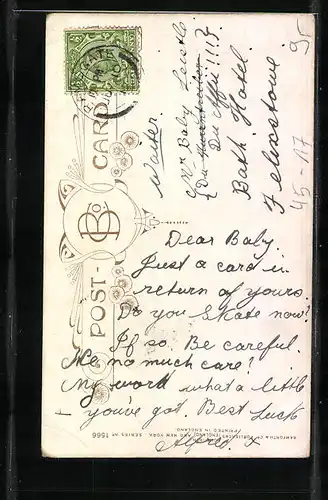 POST-CARD
Bo
Waiter.
Mr Baby Smith
Bath Hotel
Felixstowe
Dear Baby.
Just a card in
return of yours.
Do you Skate now?
If so. Be careful.
Me no much care!
My word what a little
- you've got. Best Luck
Alfred. X
BAMFORTH & CO PUBLISHERS (ENGLAND) AND NEW YORK SERIES No 1566
(PRINTED IN ENGLAND)
95
45-17